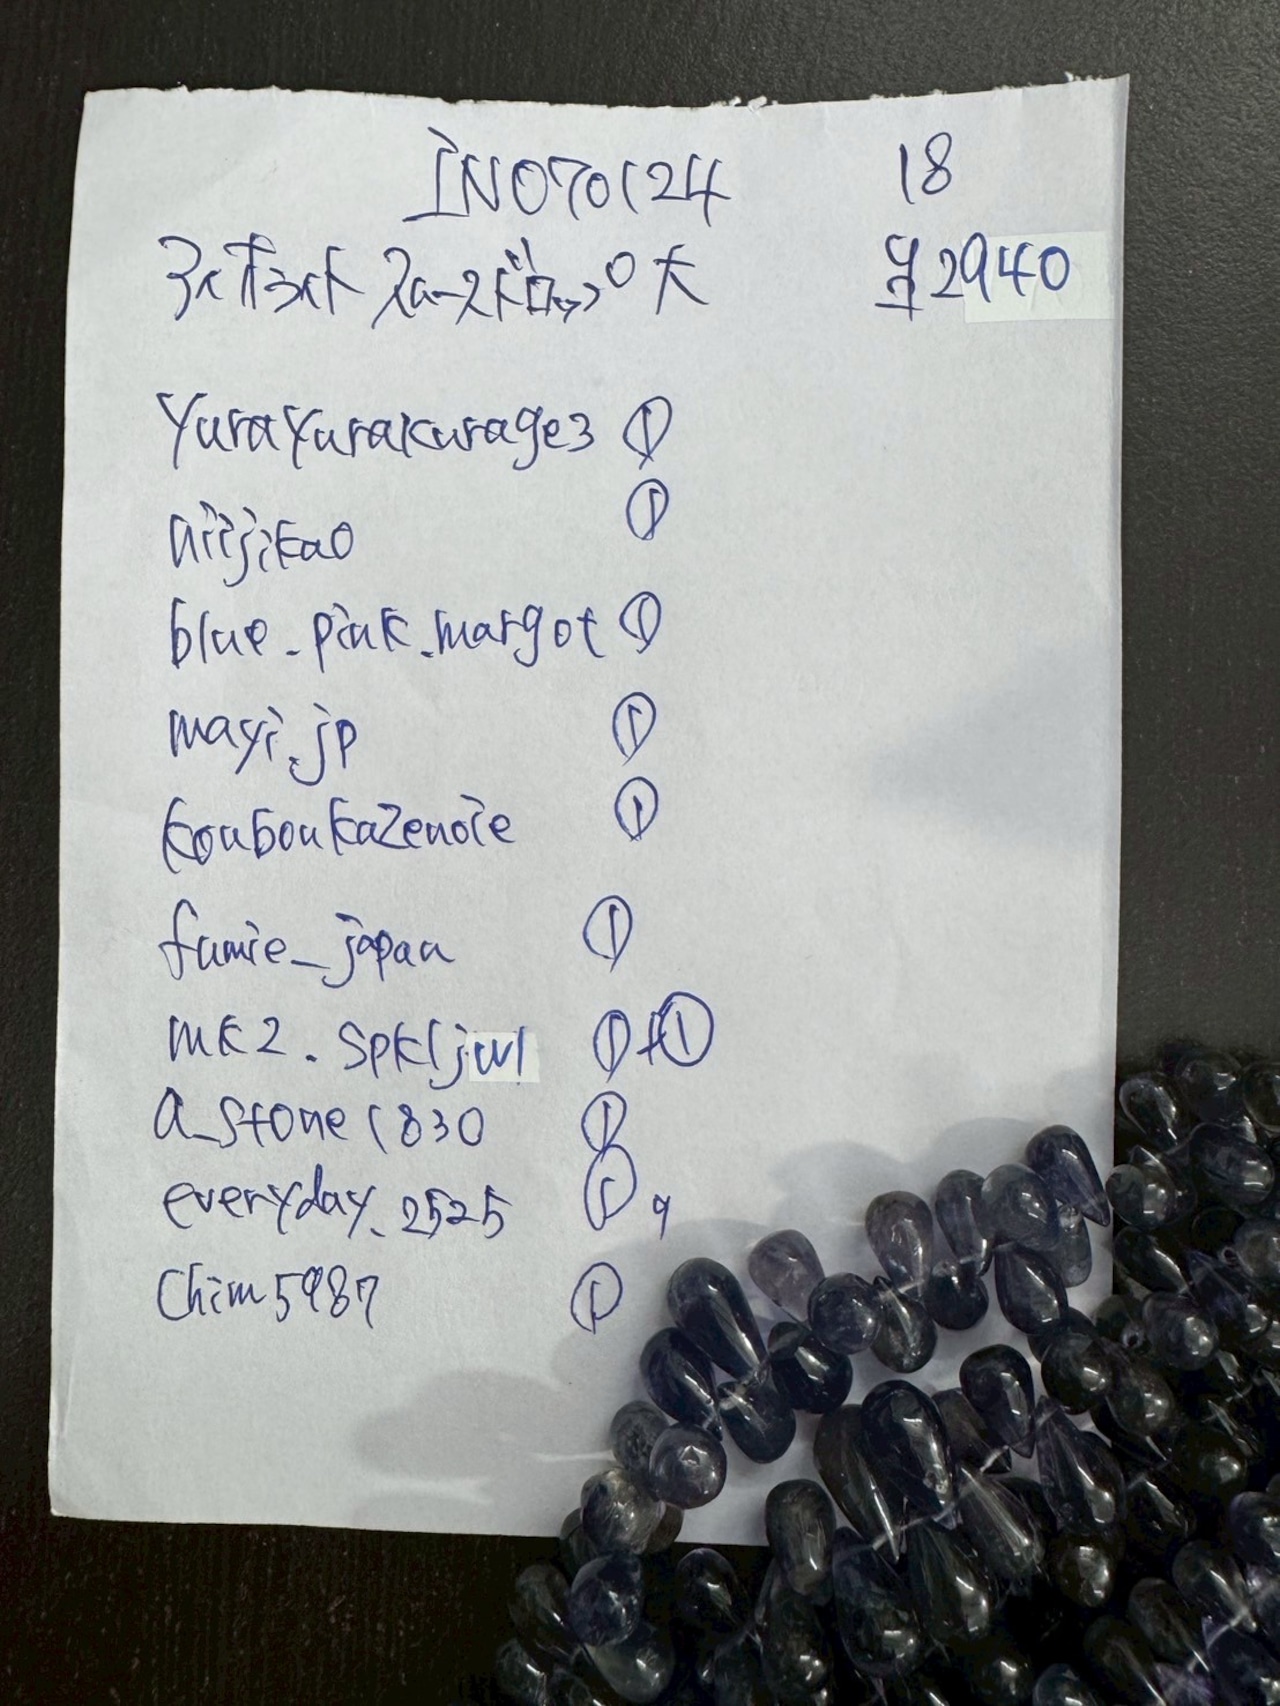 IN070124 18
アイオライト スムースドロップ 大 ¥2940
yurayurakurage3 ①
niijikao ①
blue_pink_margot ①
mayi.jp ①
kouboukazenoie ①
fumie_japan ①
mk2.spkljwl ①+①
a_stone1830 ①
everyday_2525 ① 9
Chim5987 ①